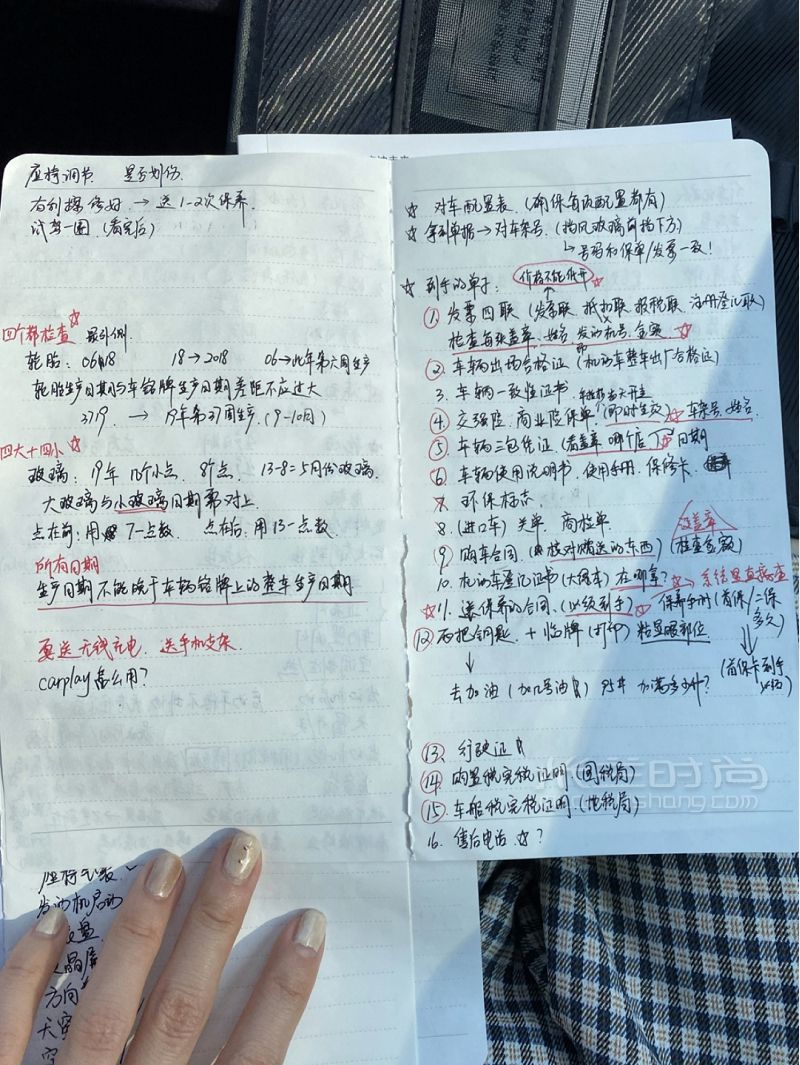 座椅调节 是否划伤.
右刮擦修好 → 送1-2次保养.
试驾一圈.(看完后)
四个都检查☆ 最外侧.
轮胎: 0618 18→2018 06→此年第六周生产
轮胎生产日期与车铭牌生产日期差距不应过大
3719 → 19年第37周生产.(9-10月)
四大十四小☆
玻璃: 19年 几个小点. 8个点. 13-8=5月份玻璃.
大玻璃与小玻璃日期需对上.
点在前:用7-点数. 点在后:用13-点数.
所有日期
生产日期不能晚于车辆铭牌上的整车生产日期
要送无线充电、送手机支架.
carplay怎么用?
座椅
发动机启动
盘.
晶屏
方向
天窗
☆ 对车配置表.(确保每项配置都有)
☆ 拿到单据→对车架号.(挡风玻璃前挡下方)
↳号码和保单/发票一致!
☆ 到手的单子: 价格不能低开☆
① 发票四联(发票联 抵扣联 报税联 注册登记联)
检查每张盖章、姓名 发动机号、金额☆
② 车辆出场合格证(机动车整车出厂合格证)
3. 车辆一致性证书.
④ 交强险、商业险保单.(即时生效)☆车架号、姓名.
⑤ 车辆三包凭证.(看盖章 哪个店)☆日期
⑥ 车辆使用说明书、使用手册、保修卡.
7. 环保标志
8. (进口车)关单 商检单. 要盖章
⑨ 购车合同.(核对赠送的东西)(检查金额)
10. 机动车登记证书(大绿本)在哪拿?☆→系统里查居查
☆11. 送保养的合同.(必须到手)☆ 保养手册(首保/二保多久)
⑫ 两把钥匙. + 临牌(打印)粘显眼部位
(首保卡到手
去加油(加几号油) 95# 加满多少升?
⑬ 行驶证
⑭ 购置税完税证明.(国税局)
⑮ 车船税完税证明.(地税局)
16. 售后电话.☆?
时尚
shang.com